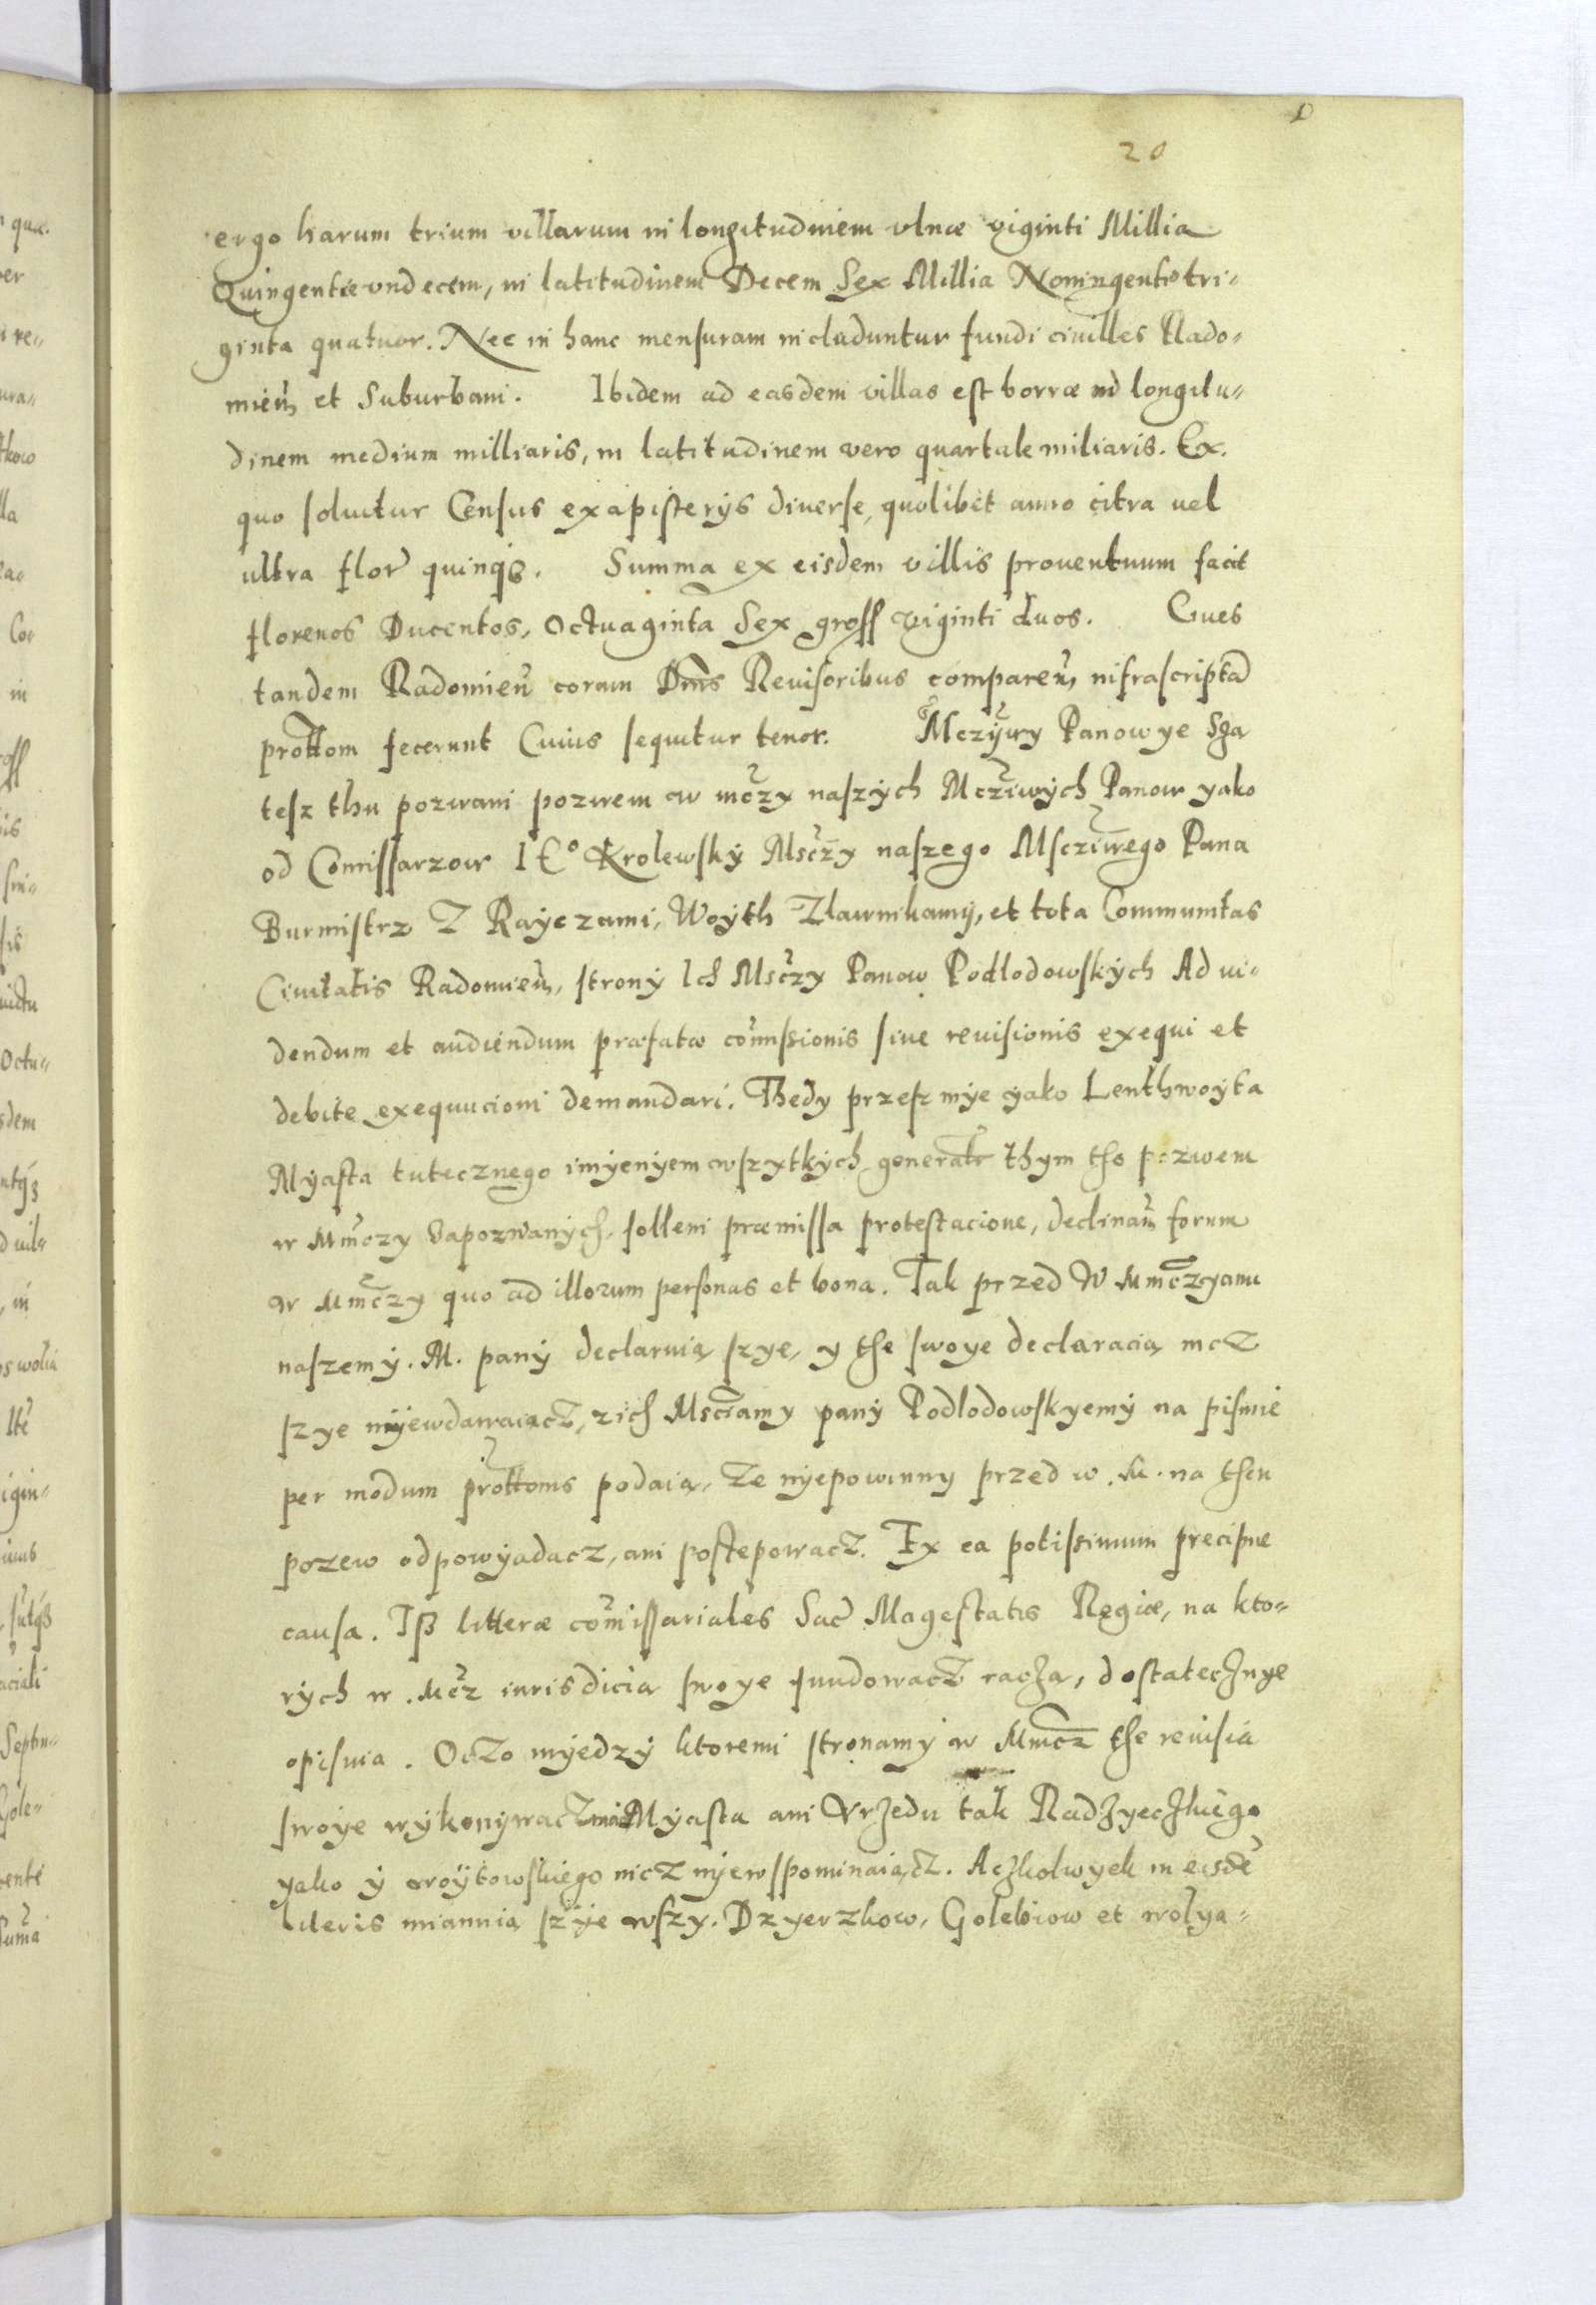 20
ergo harum trium villarum in longitudinem vlnæ viginti Millia
Quingentæ vndecem, in latitudinem Decem Sex Millia Noningentæ tri-
ginta quatuor. Nec in hanc mensuram includuntur fundi civilles Rado-
mieñ et Suburbani. Ibidem ad easdem villas est borræ in longitu-
dinem medium milliaris, in latitudinem vero quartale miliaris. Ex
quo soluitur Census ex apisterÿs diverse, quolibet anno citra uel
ultra flor quinqз. Summa ex eisdem villis prouentuum facit
florenos Ducentos, Octuaginta Sex gross viginti duos. Ciues
tandem Radomieñ coram Dnis Reuisoribus compareñ, infrascriptã
prottom fecerunt Cuius sequitur tenor. Mczÿwy Panowye Sza
tesz thu pozwani pozwem w mczy naszÿch Mcziwÿch Panow yako
od Comissarzow I E° Krolewskÿ Msczy naszego Mscziwego Pana
Burmistrz Z Raÿczami, Woÿth Zlawnikamÿ, et tota Communitas
Ciuitatis Radomieñ, stronÿ Ich Msczy Panow Podlodowskÿch Ad ui-
dendum et audiendum præfatæ comissionis siue reuisionis exequi et
debite exequucioni demandari. Thedy przesz mÿe yako Lenthwoÿta
Mÿasta tutecznego imÿenÿem wszytkÿch generalr thym tho pozwem
w Mmczy Zapozwanÿch, solleni præmissa protestacione, declinañ forum
w Mmczy quo ad illorum personas et bona. Tak przed W Mmczyami
naszemÿ. M. panÿ declaruia szye, y the swoye declaracia mcz
szye nÿewdawaiacz, zich Msciamy panÿ Podlodowskyemÿ na pismie
per modum prottoms podaia, Ze nÿepowinny przed w. M. na then
pozew odpowÿadacz, ani postepowacz. Ex ea potissimum precipue
causa. Iß litteræ comissariales Sac Magestatis Regiæ, na kto-
rÿch w. Mcz iurisdicia swoye fundowacz racza, dostatecznye
opisuia. Oczo mÿedzÿ ktoremi stronamÿ w Mmcz the reuisia
swoÿe wÿkonÿwacz maia Mÿasta ani Vrzedu tak Radzyeczkiego
yako ÿ woÿtowskiego nicz nÿewspominaiacz. Aczkolwyek in eisdē
literis mianuia szÿe wszy. Dzyerzkow, Golebiow et wolya-